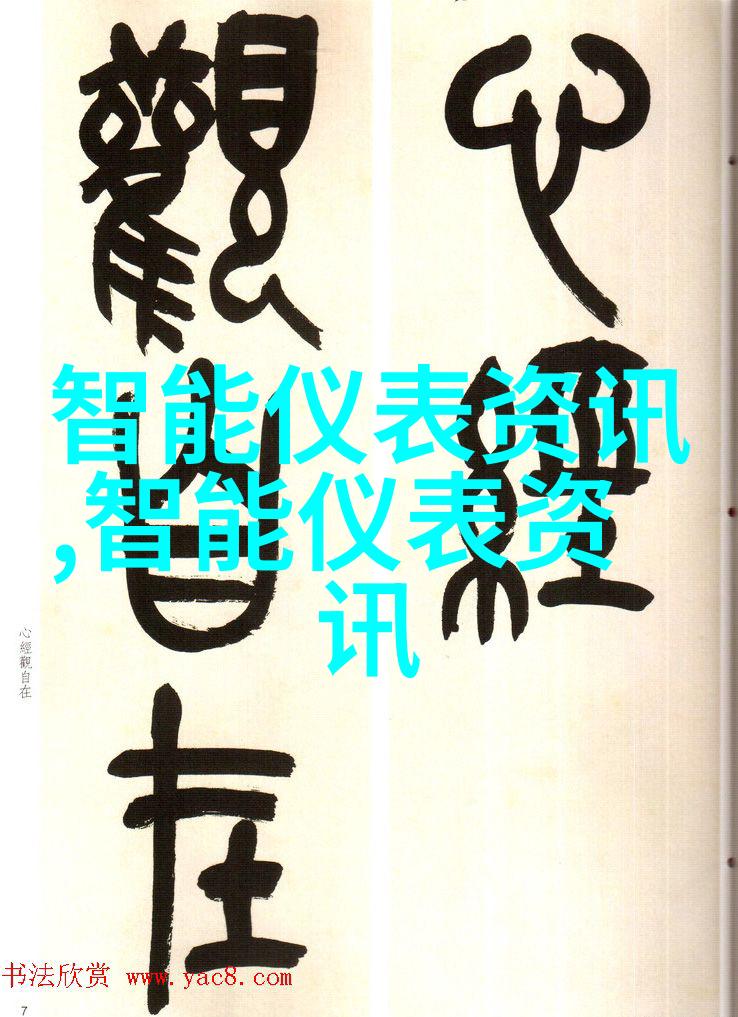 心經
觀自在
智能仪表资讯
,智能仪表资
讯
心經觀自在
书法欣赏 www.yac8.com
7